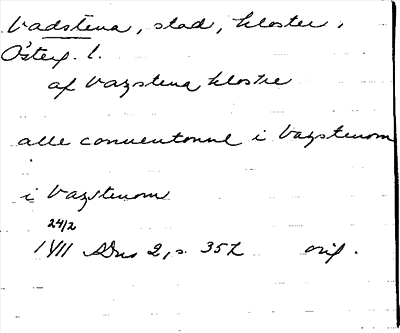 Vadstena, stad, kloster,
Österg. l.
af Vazstena klostre
alle conuentonne i Vazstenom
i Vazstenom
24/2
1411 SDns 2, s. 352 orig.